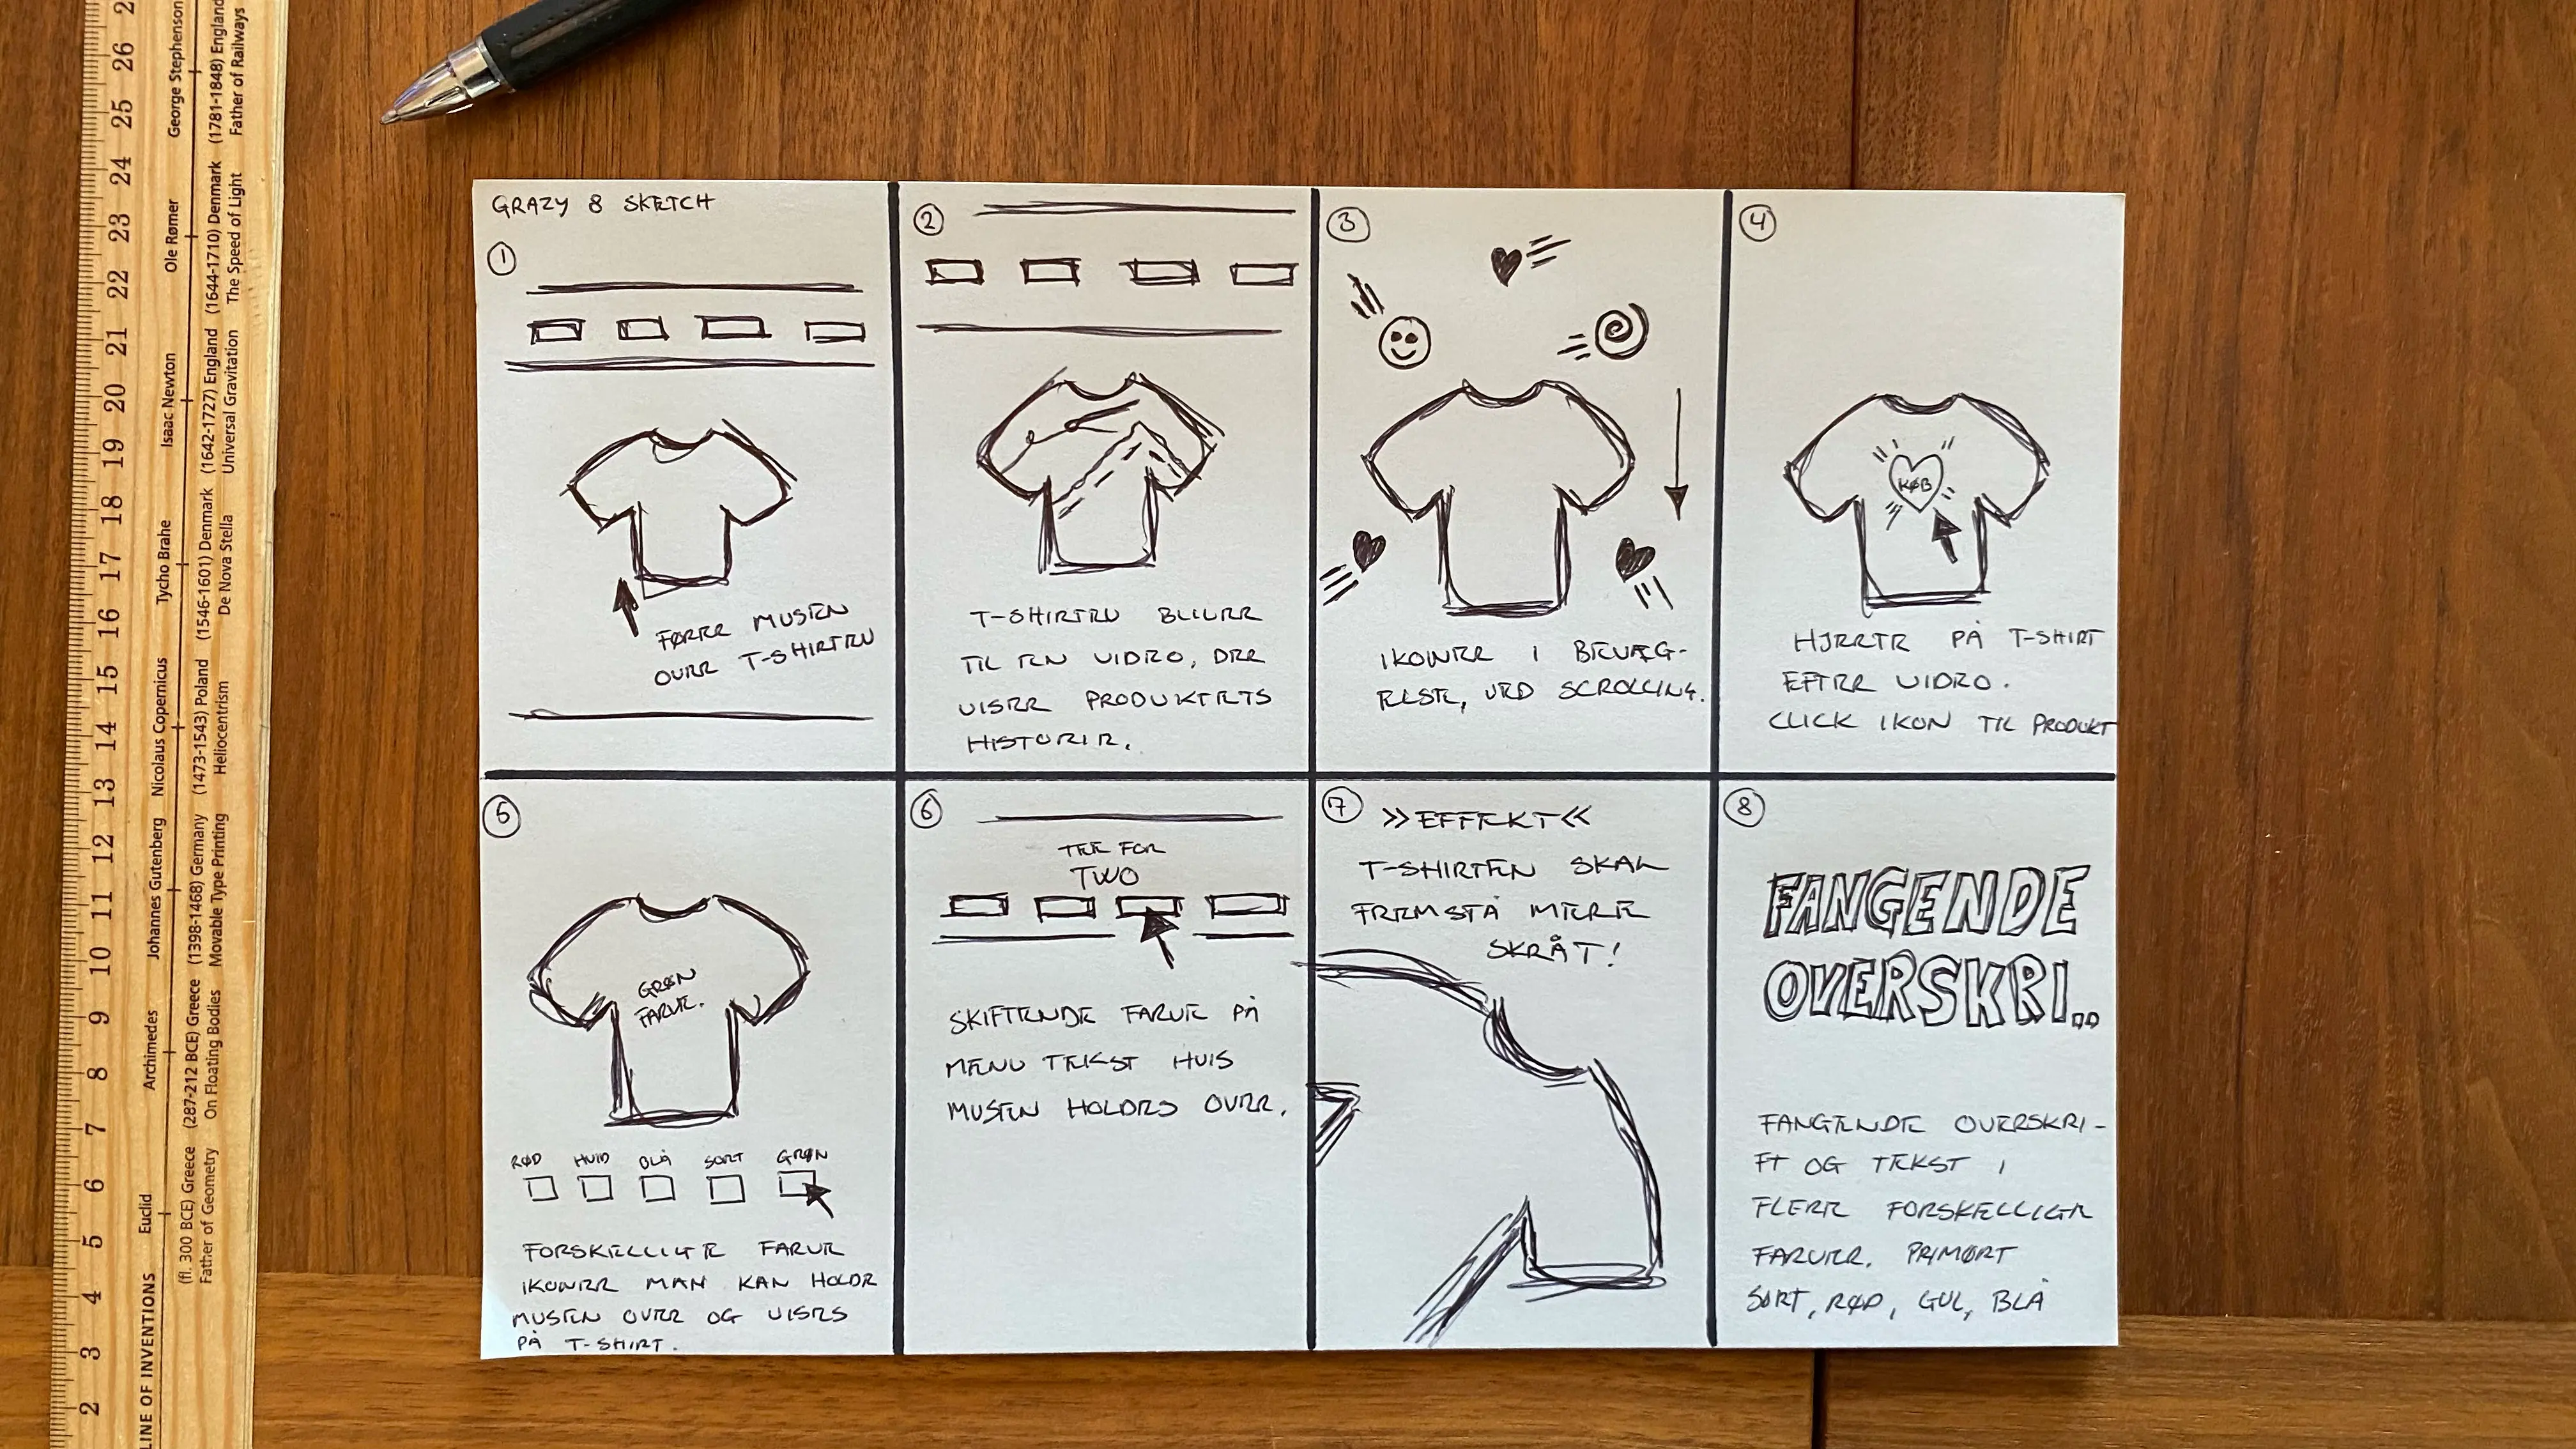 GRAZY 8 SKETCH
1
FØRER MUSEN
OVER T-SHIRTEN
2
T-SHIRTEN BLIVER
TIL EN VIDEO, DER
VISER PRODUKTETS
HISTORIE.
3
IKONER I BEVÆG-
ELSE, VED SCROLLING.
4
KØB
HJERTE PÅ T-SHIRT
EFTER VIDEO.
CLICK IKON TIL PRODUKT
5
GRØN
FARVE.
RØD HVID BLÅ SORT GRØN
FORSKELLIGE FARVE
IKONER MAN KAN HOLDE
MUSEN OVER OG VISES
PÅ T-SHIRT.
6
TEE FOR
TWO
SKIFTENDE FARVE PÅ
MENU TEKST HVIS
MUSEN HOLDES OVER.
7
>> EFFEKT <<
T-SHIRTEN SKAL
FREMSTÅ MERE
SKRÅT!
8
FANGENDE
OVERSKRI..
FANGENDE OVERSKRI-
FT OG TEKST I
FLERE FORSKELLIGE
FARVER. PRIMØRT
SORT, RØD, GUL, BLÅ
LINE OF INVENTIONS
Euclid
(fl. 300 BCE) Greece
Father of Geometry
Archimedes
(287-212 BCE) Greece
On Floating Bodies
Johannes Gutenberg
(1398-1468) Germany
Movable Type Printing
Nicolaus Copernicus
(1473-1543) Poland
Heliocentrism
Tycho Brahe
(1546-1601) Denmark
De Nova Stella
Isaac Newton
(1642-1727) England
Universal Gravitation
Ole Rømer
(1644-1710) Denmark
The Speed of Light
George Stephenson
(1781-1848) England
Father of Railways
2 3 4 5 6 7 8 9 10 11 12 13 14 15 16 17 18 19 20 21 22 23 24 25 26